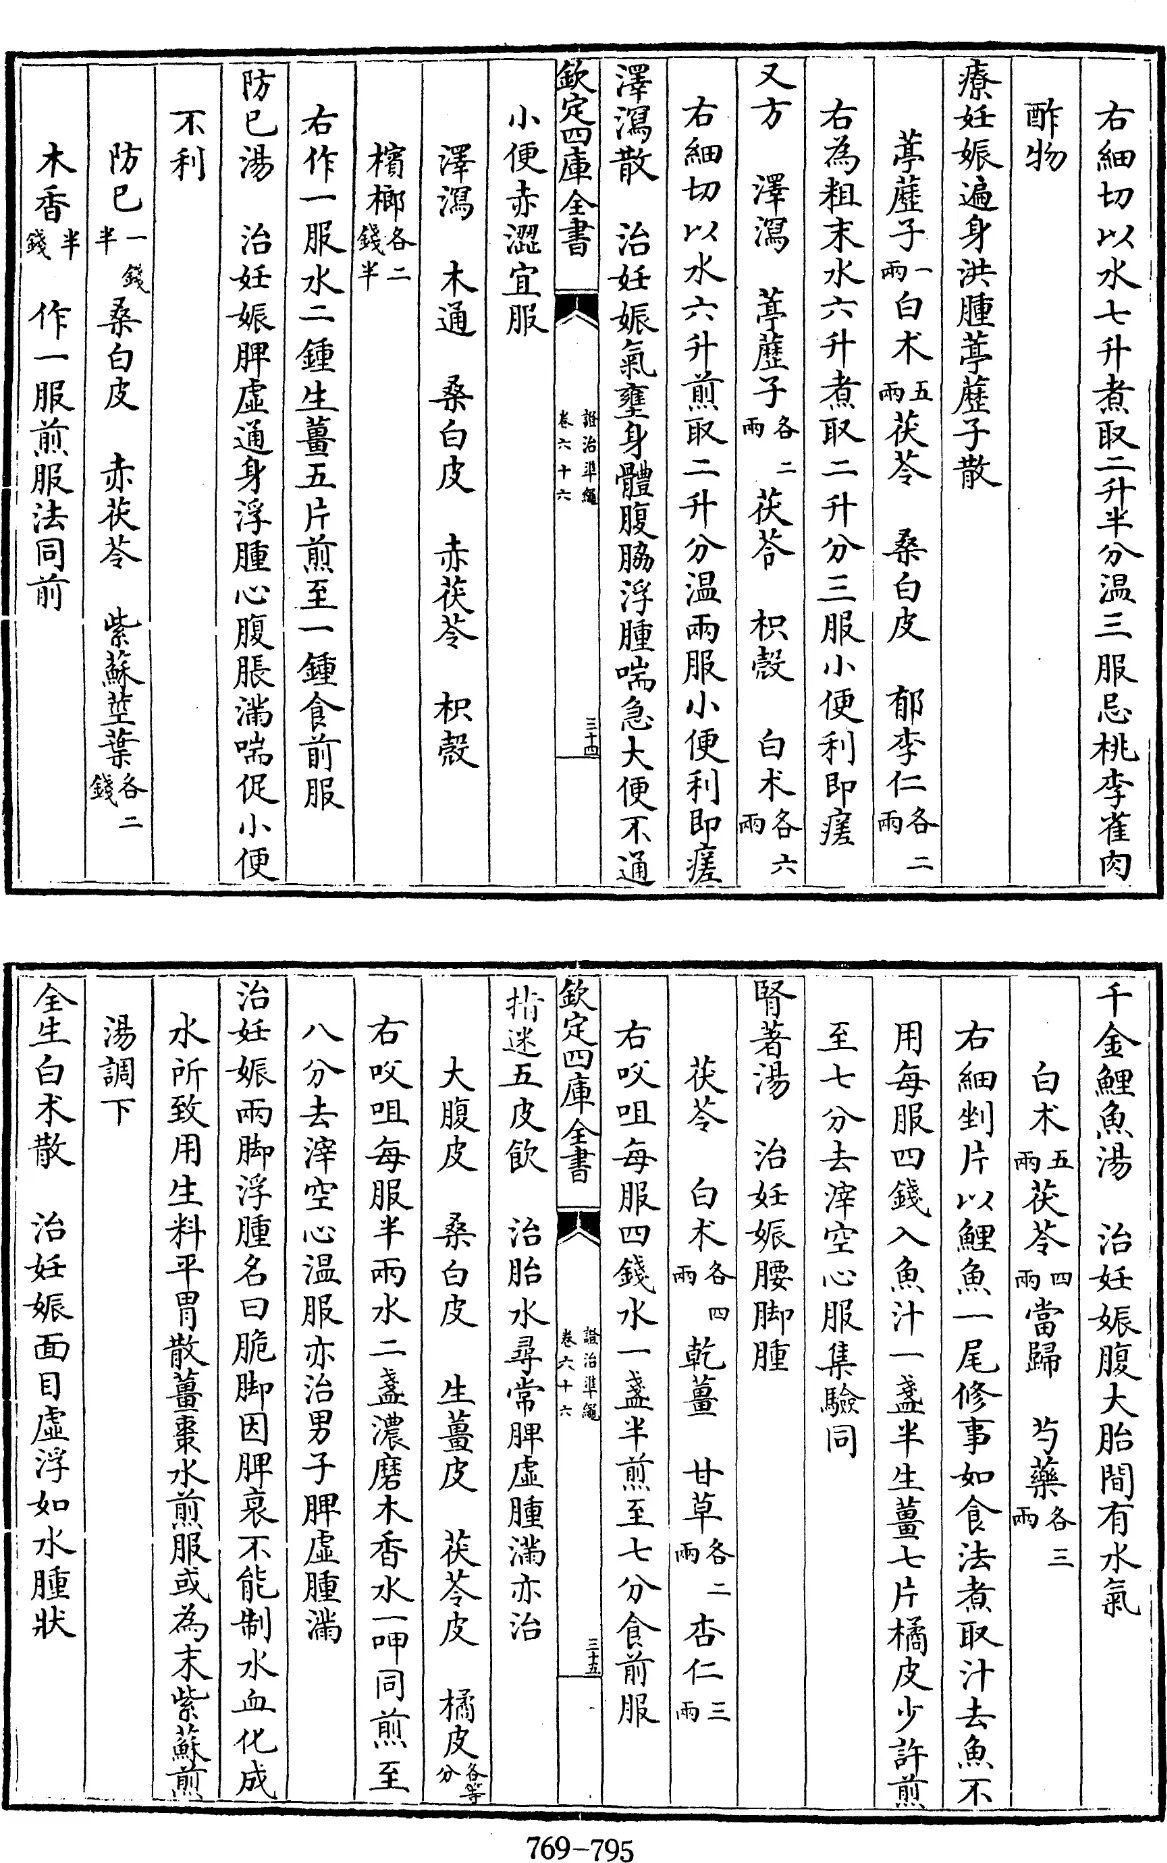 右細切以水七升煮取二升半分温三服忌桃李雀肉
酢物
療妊娠遍身洪腫葶藶子散
葶藶子一兩白术五兩茯苓　桑白皮　郁李仁各二兩
右為粗末水六升煮取二升分三服小便利即瘥
又方　澤瀉　葶藶子各二兩茯苓　枳殼　白术各六兩
右細切以水六升煎取二升分温兩服小便利即瘥
澤瀉散　治妊娠氣壅身體腹脇浮腫喘急大便不通
欽定四庫全書　證治準繩卷六十六　三十四
小便赤澀宜服
澤瀉　木通　桑白皮　赤茯苓　枳殼
檳榔各二錢半
右作一服水二鍾生薑五片煎至一鍾食前服
防已湯　治妊娠脾虛通身浮腫心腹脹滿喘促小便
不利
防已一錢半桑白皮　赤茯苓　紫蘇莖葉各二錢
木香半錢　作一服煎服法同前
千金鯉魚湯　治妊娠腹大胎間有水氣
白术五兩茯苓四兩當歸　芍藥各三兩
右細剉片以鯉魚一尾修事如食法煮取汁去魚不
用每服四錢入魚汁一盞半生薑七片橘皮少許煎
至七分去滓空心服集驗同
腎著湯　治妊娠腰脚腫
茯苓　白术各四兩乾薑　甘草各二兩杏仁三兩
右㕮咀每服四錢水一盞半煎至七分食前服
欽定四庫全書　證治準繩卷六十六　三十五
指迷五皮飲　治胎水尋常脾虛腫滿亦治
大腹皮　桑白皮　生薑皮　茯苓皮　橘皮各等分
右㕮咀每服半兩水二盞濃磨木香水一呷同煎至
八分去滓空心温服亦治男子脾虛腫滿
治妊娠兩脚浮腫名曰脆脚因脾衰不能制水血化成
水所致用生料平胃散薑棗水煎服或為末紫蘇煎
湯調下
全生白术散　治妊娠面目虛浮如水腫狀
769-795